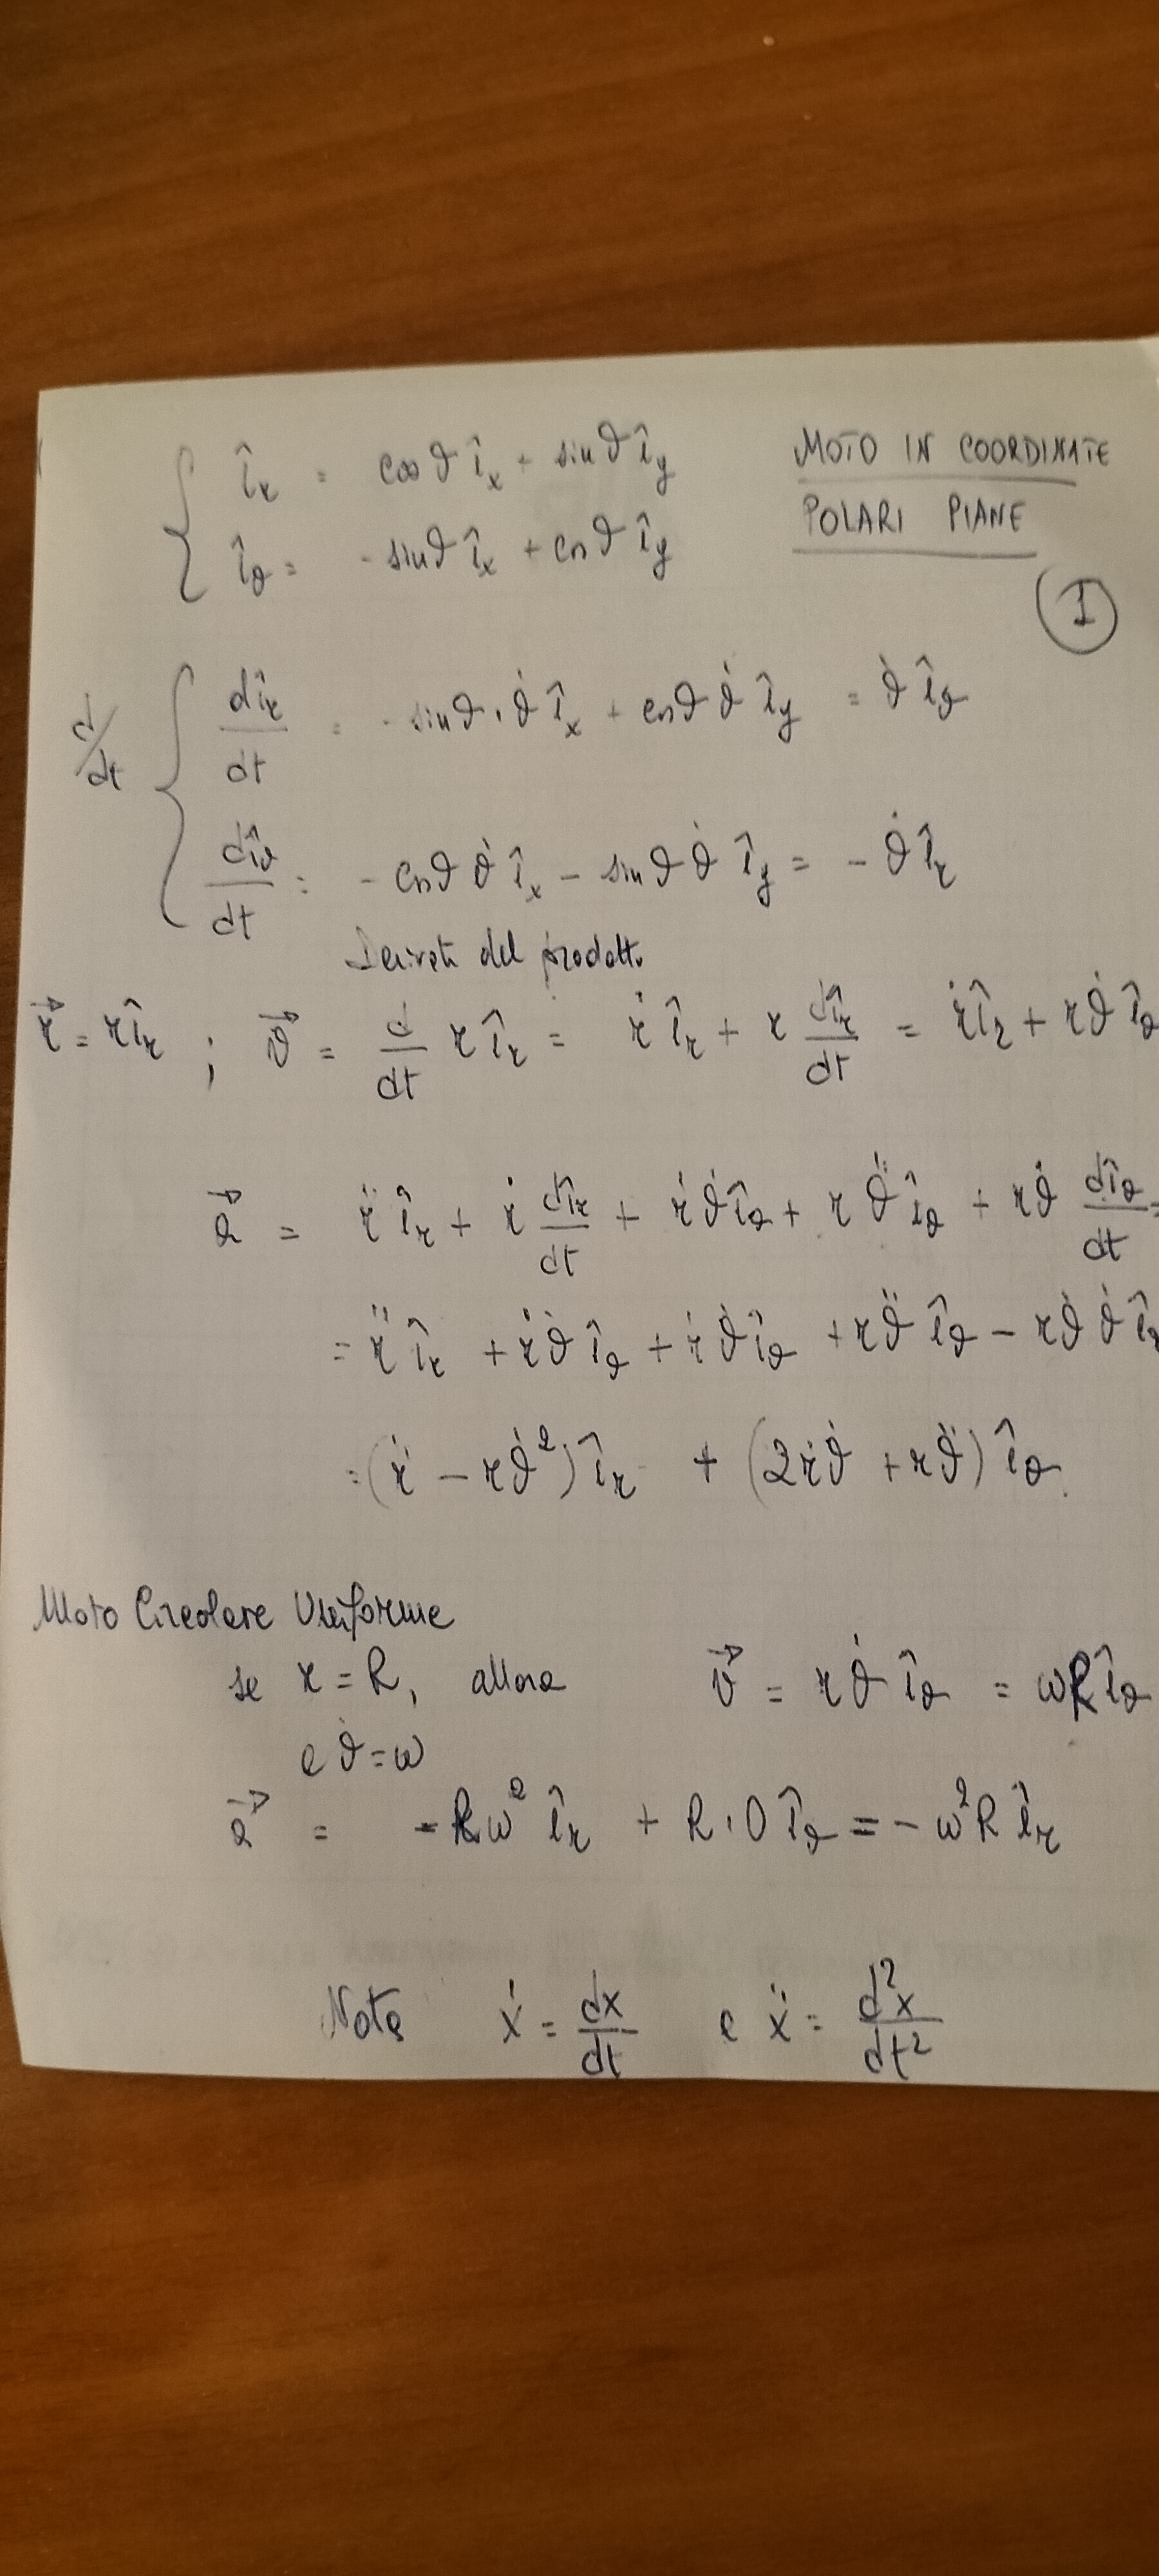 MOTO IN COORDINATE
POLARI PIANE
I
{ î_r = cosϑ î_x + sinϑ î_y
î_ϑ = - sinϑ î_x + cosϑ î_y
d/dt { dî_r/dt = - sinϑ · ϑ̇ î_x + cosϑ ϑ̇ î_y = ϑ̇ î_ϑ
dî_ϑ/dt = - cosϑ ϑ̇ î_x - sinϑ ϑ̇ î_y = - ϑ̇ î_r
Derivata del prodotto
r⃗ = r î_r ; v⃗ = d/dt r î_r = ṙ î_r + r dî_r/dt = ṙ î_r + r ϑ̇ î_ϑ
a⃗ = r̈ î_r + ṙ dî_r/dt + ṙ ϑ̇ î_ϑ + r ϑ̈ î_ϑ + r ϑ̇ dî_ϑ/dt =
= r̈ î_r + ṙ ϑ̇ î_ϑ + ṙ ϑ̇ î_ϑ + r ϑ̈ î_ϑ - r ϑ̇ ϑ̇ î_r
= (r̈ - r ϑ̇²) î_r + (2 ṙ ϑ̇ + r ϑ̈) î_ϑ.
Moto Circolare Uniforme
se r = R, allora v⃗ = r ϑ̇ î_ϑ = ωR î_ϑ
e ϑ̇ = ω
a⃗ = - Rω² î_r + R · 0 î_ϑ = - ω² R î_r
Nota ẋ = dx/dt e ẍ = d²x/dt²